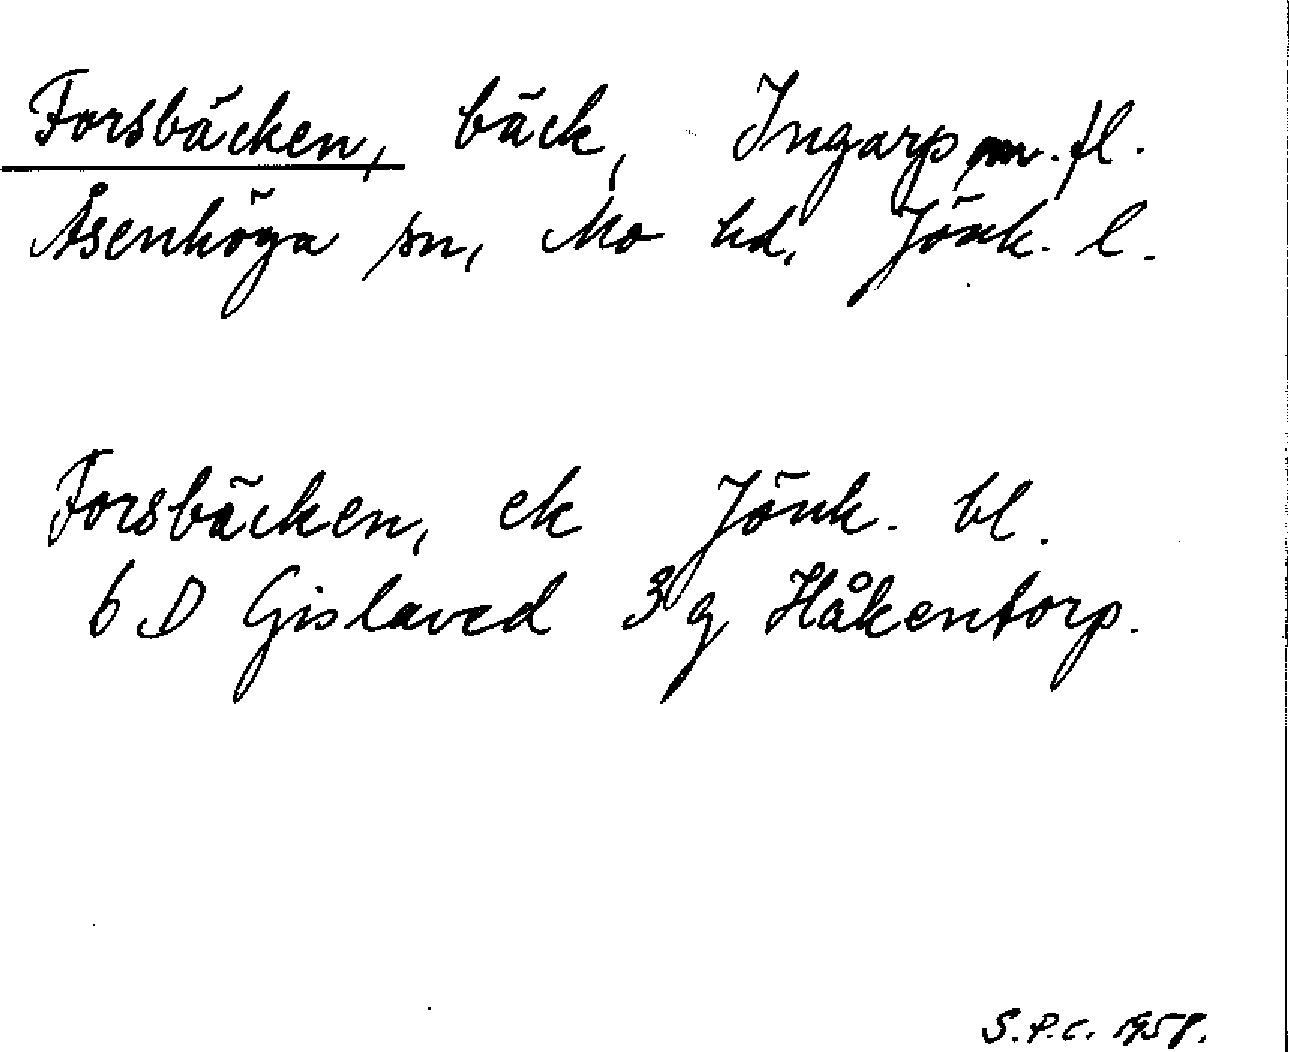 Forsbäcken, bäck, Ingarp m. fl.
Åsenhöga sn, Mo hd. Jönk. l.
Forsbäcken, ek Jönk. bl.
6 D Gislaved 3 g Håkentorp.
S.P.C. 1958.